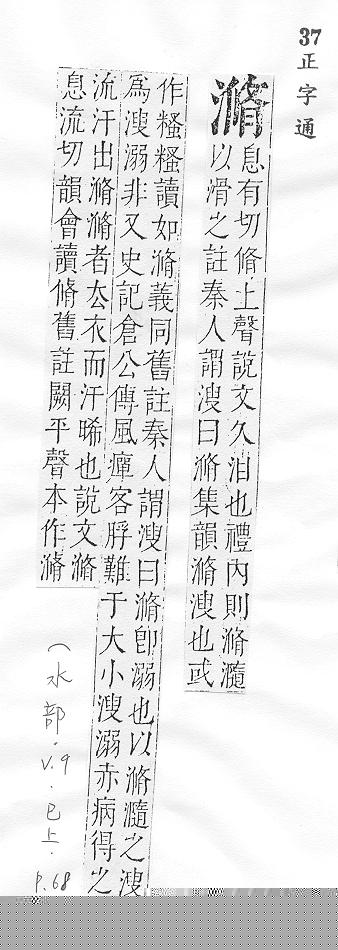 37
正字通
滫
息有切脩上聲說文久泔也禮內則滫瀡
以滑之註秦人謂溲曰滫集韻滫溲也或
作糔糔讀如滫義同舊註秦人謂溲曰滫卽溺也以滫瀡之溲
爲溲溺非又史記倉公傳風癉客脬難于大小溲溺赤病得之
流汗出滫滫者去衣而汗晞也說文滫
息流切韻會讀脩舊註闕平聲本作滫
(水部.v.9.巳上.p.68